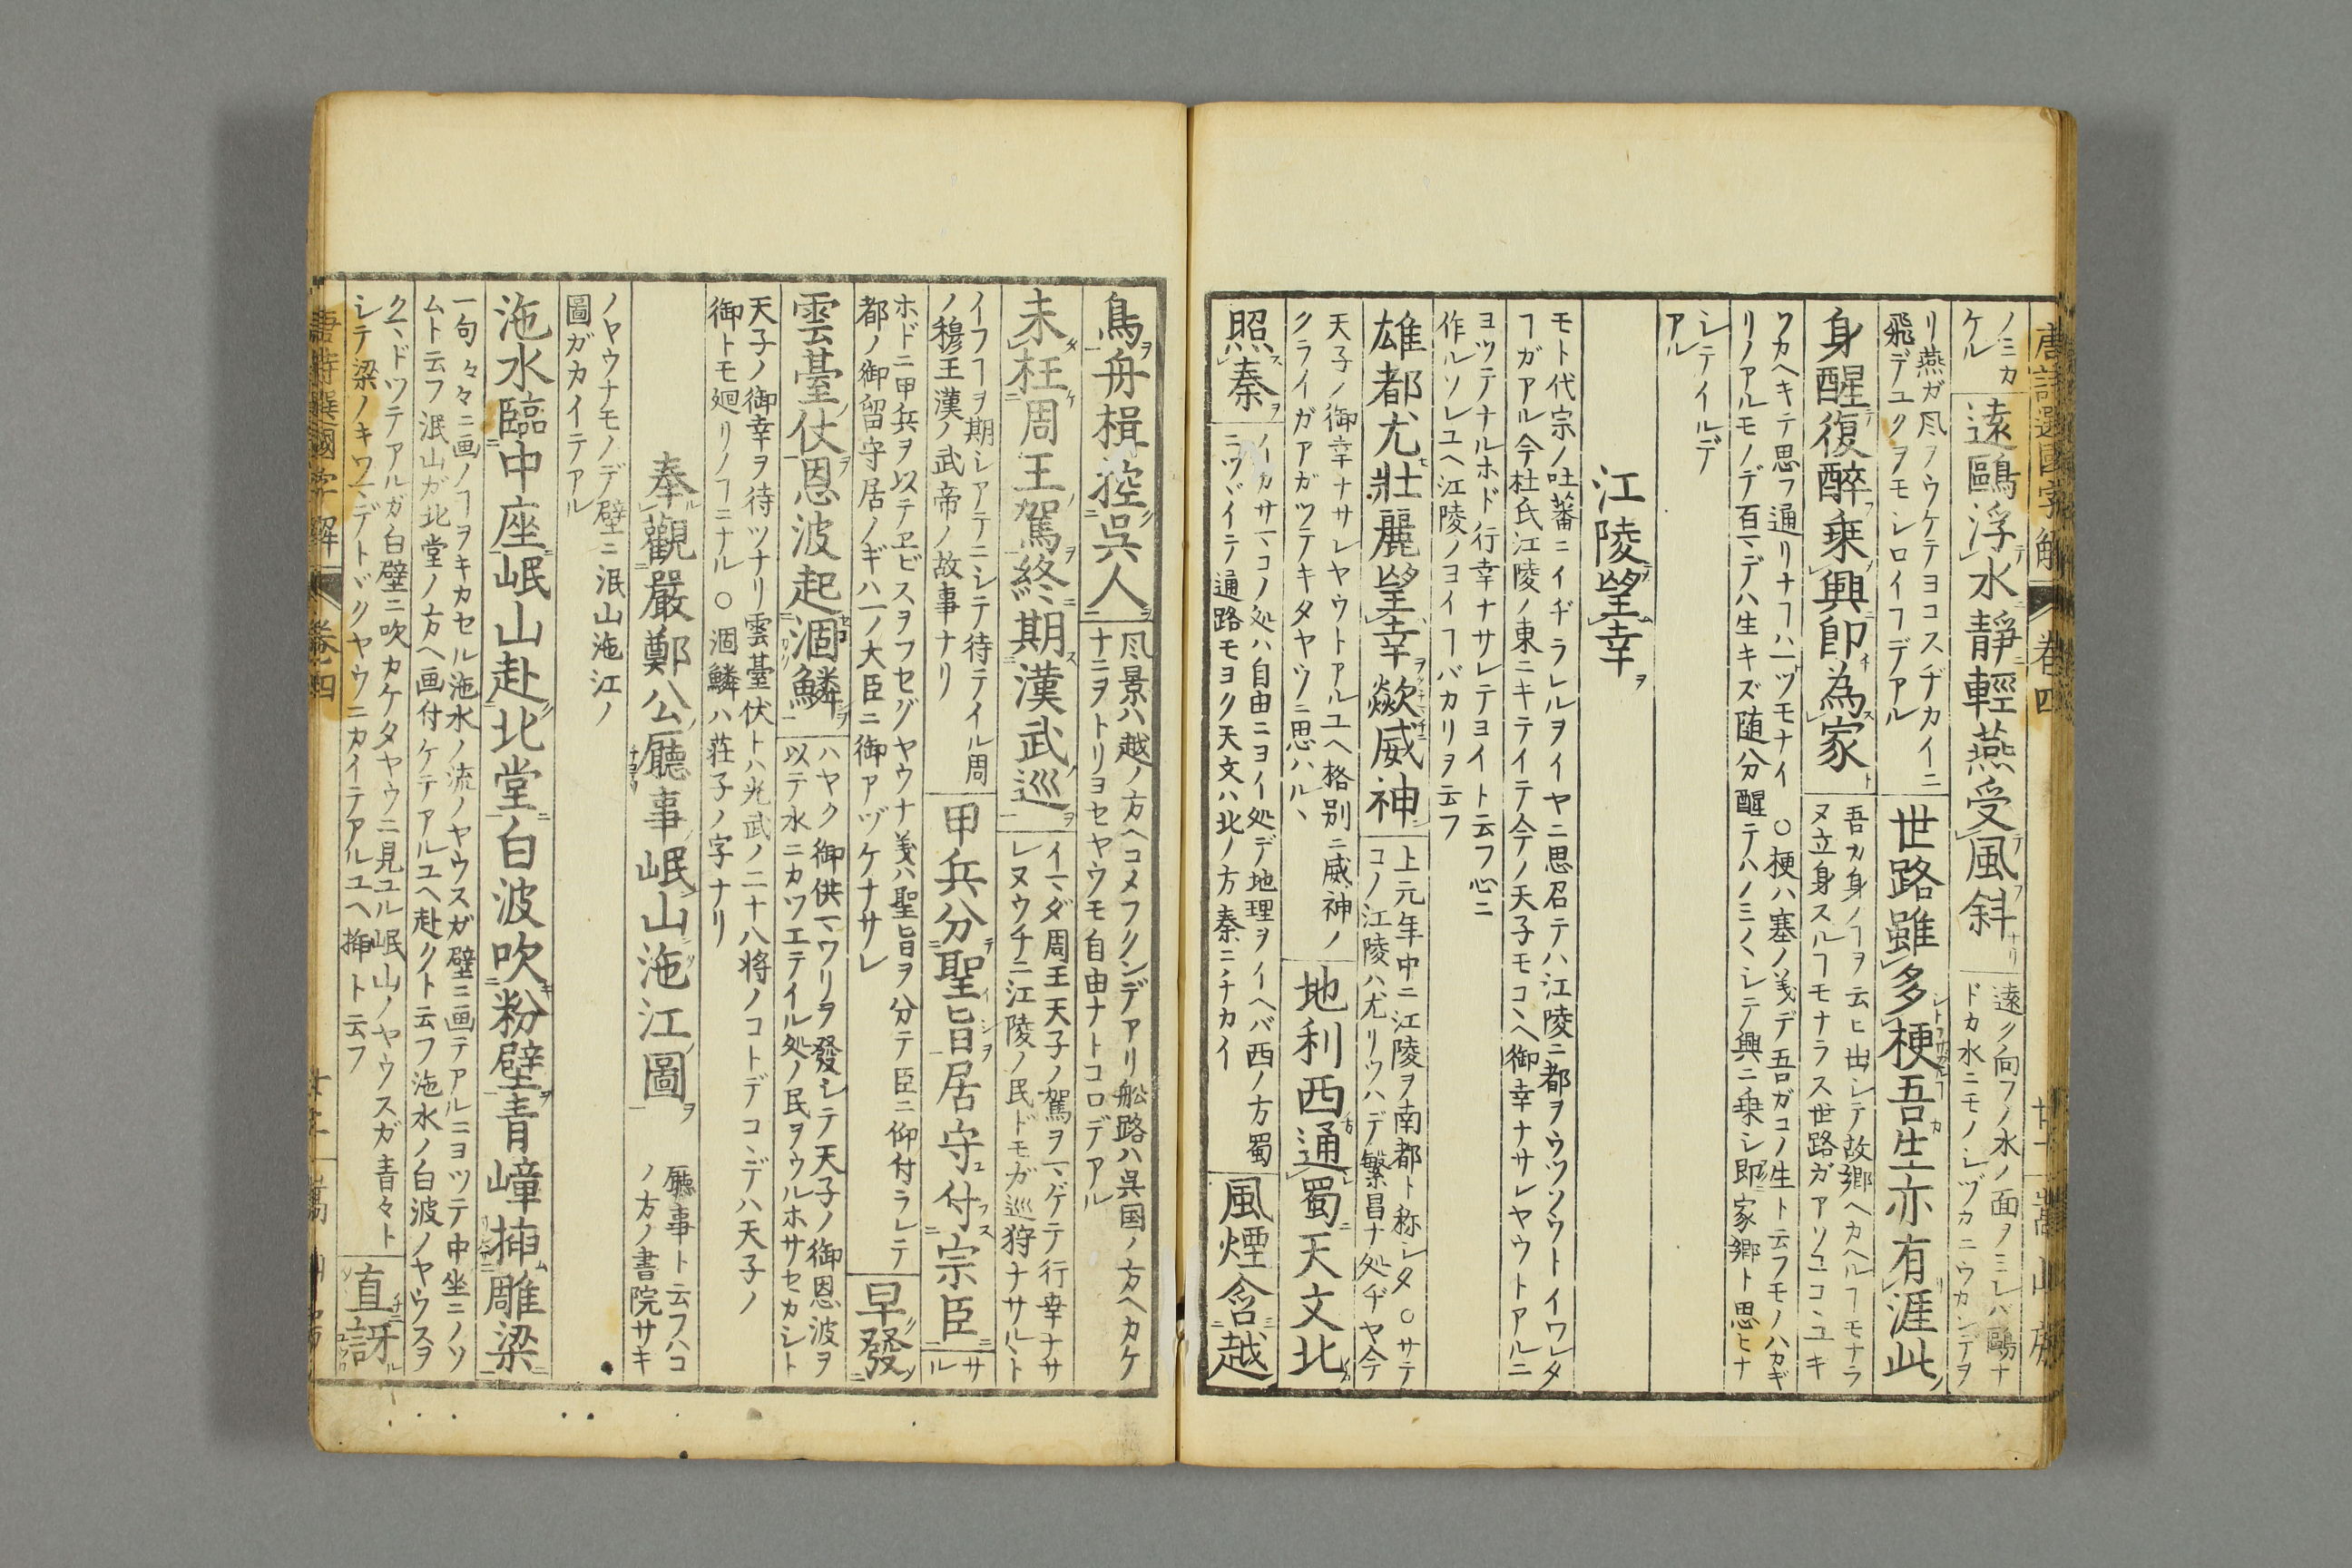 唐詩選國字解 卷四 嵩山房
ノミカ
ケル
遠鷗浮水靜輕燕受風斜
遠ク向フノ水ノ面ヲノミレバ鷗ナ
ドカ水ニモノシヅカニウカンデヲ
リ燕ガ风ヲウケテヨコスヂカイニ
飛デユクヲモシロイヿデアル
世路雖多梗吾生亦有涯此
身醒復醉乗興卽為家
吾カ身ノヿヲ云ヒ出シテ故郷ヘカヘルヿモナラ
ヌ立身スルヿモナラス世路ガアソココヽユキ
ワカヘキテ思フ通リナヿハ一ツモナイ ○梗ハ塞ノ義デ吾ガコノ生ト云フモノハカギ
リノアルモノデ百マデハ生キズ随分醒テハノミ〱シテ興ニ乗シ即家郷ト思ヒナ
シテイルデ
アル
江陵望幸
モト代宗ノ吐蕃ニイヂラレルヲイヤニ思召テハ江陵ニ都ヲウツソウトイワレタ
ヿガアル今杜氏江陵ノ東ニキテイテ今ノ天子モコヽヘ御幸ナサレヤウトアルニ
ヨツテナルホド行幸ナサレテヨイト云フ心ニ
作ルソレユヘ江陵ノヨイヿバカリヲ云フ
雄都尤壯麗望幸歘威神
上元年中ニ江陵ヲ南都ト称シタ ○サテ
コノ江陵ハ尤リウハデ繁昌ナ処ヂヤ今
天子ノ御幸ナサレヤウトアルユヘ格別ニ威神ノ
クライガアガツテキタヤウニ思ハルヽ
地利西通蜀天文北
照秦
イカサマコノ処ハ自由ニヨイ処デ地理ヲイヘバ西ノ方蜀
ニツヾイテ通路モヨク天文ハ北ノ方秦ニチカイ
風煙含越
鳥舟楫控吳人
风景ハ越ノ方ヘコメフクンデアリ舩路ハ呉国ノ方ヘカケ
ナニヲトリヨセヤウモ自由ナトコロデアル
未枉周王駕終期漢武巡
イマダ周王天子ノ駕ヲマゲテ行幸ナサ
レヌウチニ江陵ノ民ドモガ巡狩ナサルヽト
イフヿヲ期シアテニシテ待テイル周
ノ穆王漢ノ武帝ノ故事ナリ
甲兵分聖旨居守付宗臣
サ
ル
ホドニ甲兵ヲ以テヱビスヲフセグヤウナ義ハ聖旨ヲ分テ臣ニ仰付ラレテ
都ノ御留守居ノギハ一ノ大臣ニ御アヅケナサレ
早發
雲臺仗恩波起涸鱗
ハヤク御供マワリヲ發シテ天子ノ御恩波ヲ
以テ水ニカツエテイル処ノ民ヲウルホサセカシト
天子ノ御幸ヲ待ツナリ雲臺伏トハ光武ノ二十八将ノコトデコヽデハ天子ノ
御トモ廻リノヿニナル ○涸鱗ハ荘子ノ字ナリ
奉觀嚴鄭公廳事岷山沲江圖
廳事ト云フハコ
ノ方ノ書院サキ
ノヤウナモノデ壁ニ泯山沲江ノ
圖ガカイテアル
沲水臨中座岷山赴北堂白波吹粉壁青嶂揷雕梁
一句々々ニ画ノヿヲキカセル沲水ノ流ノヤウスガ壁ニ画テアルニヨツテ中坐ニノソ
ムト云フ泯山ガ北堂ノ方ヘ画付ケテアルユヘ赴クト云フ沲水ノ白波ノヤウスヲ
クヽドツテアルガ白壁ニ吹カケタヤウニ見ユル岷山ノヤウスガ青々ト
シテ梁ノキワマデトヾクヤウニカイテアルユヘ揷ト云フ
直訝
唐詩選國字解 卷四